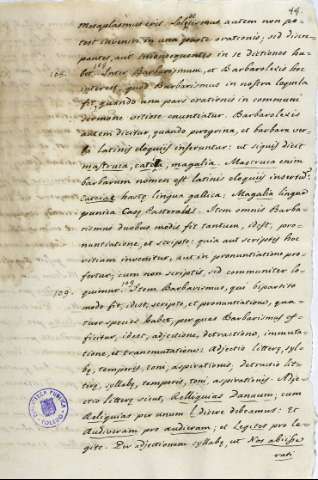 44.
metaplasmus erit. Soloecismus autem non po-
test inveniri in una parte orationis; sed discre-
pantes, aut inconsequentes in se dictiones ha-
108. bet. Inter Barbarismum, et Barbarolexis hoc
interest, quod Barbarismus in nostra loquela
fit, quando una pars orationis in communi
sermone vitiose enuntiatur. Barbarolexis
autem dicitur, quando peregrina, et barbara ver-
ba latinis eloquiis inferuntur: ut siquis dicat
mastruca, cateia, magalia. Mastruca enim
barbarum nomen est latinis eloquiis insertum.
hasta lingua gallica. Magalia lingua
punica Casas Pastorales. Item omnis Barba-
rismus duobus modis fit tantum, idest, pro-
nuntiatione, et scripto: quia aut scriptis hoc
vitium invenitur, aut in pronuntiatione pro-
fertur; cum non scriptis, sed communiter lo-
109. quimur. Item Barbarismus, qui bipartito
modo fit, idest, scripto, et pronuntiatione, qua-
tuor species habet, per quas Barbarismus ef-
ficitur, idest, adjectione, detractione, immuta-
tione, et transmutatione: Adjectio litterę, sylla-
bę, temporis, toni, aspirationis, detractio lit-
terę, syllabę, temporis, toni, aspirationis. Adje-
ctio litterę sicut, Relliquias Danaum; cum
Reliquias per unum l dicere debeamus: Et
Audiveram pro audieram; et Legites pro le-
gite. Per adjectionem syllabę, ut Nos abiisse
rati
BIBLIOTECA PUBLICA
TOLEDO